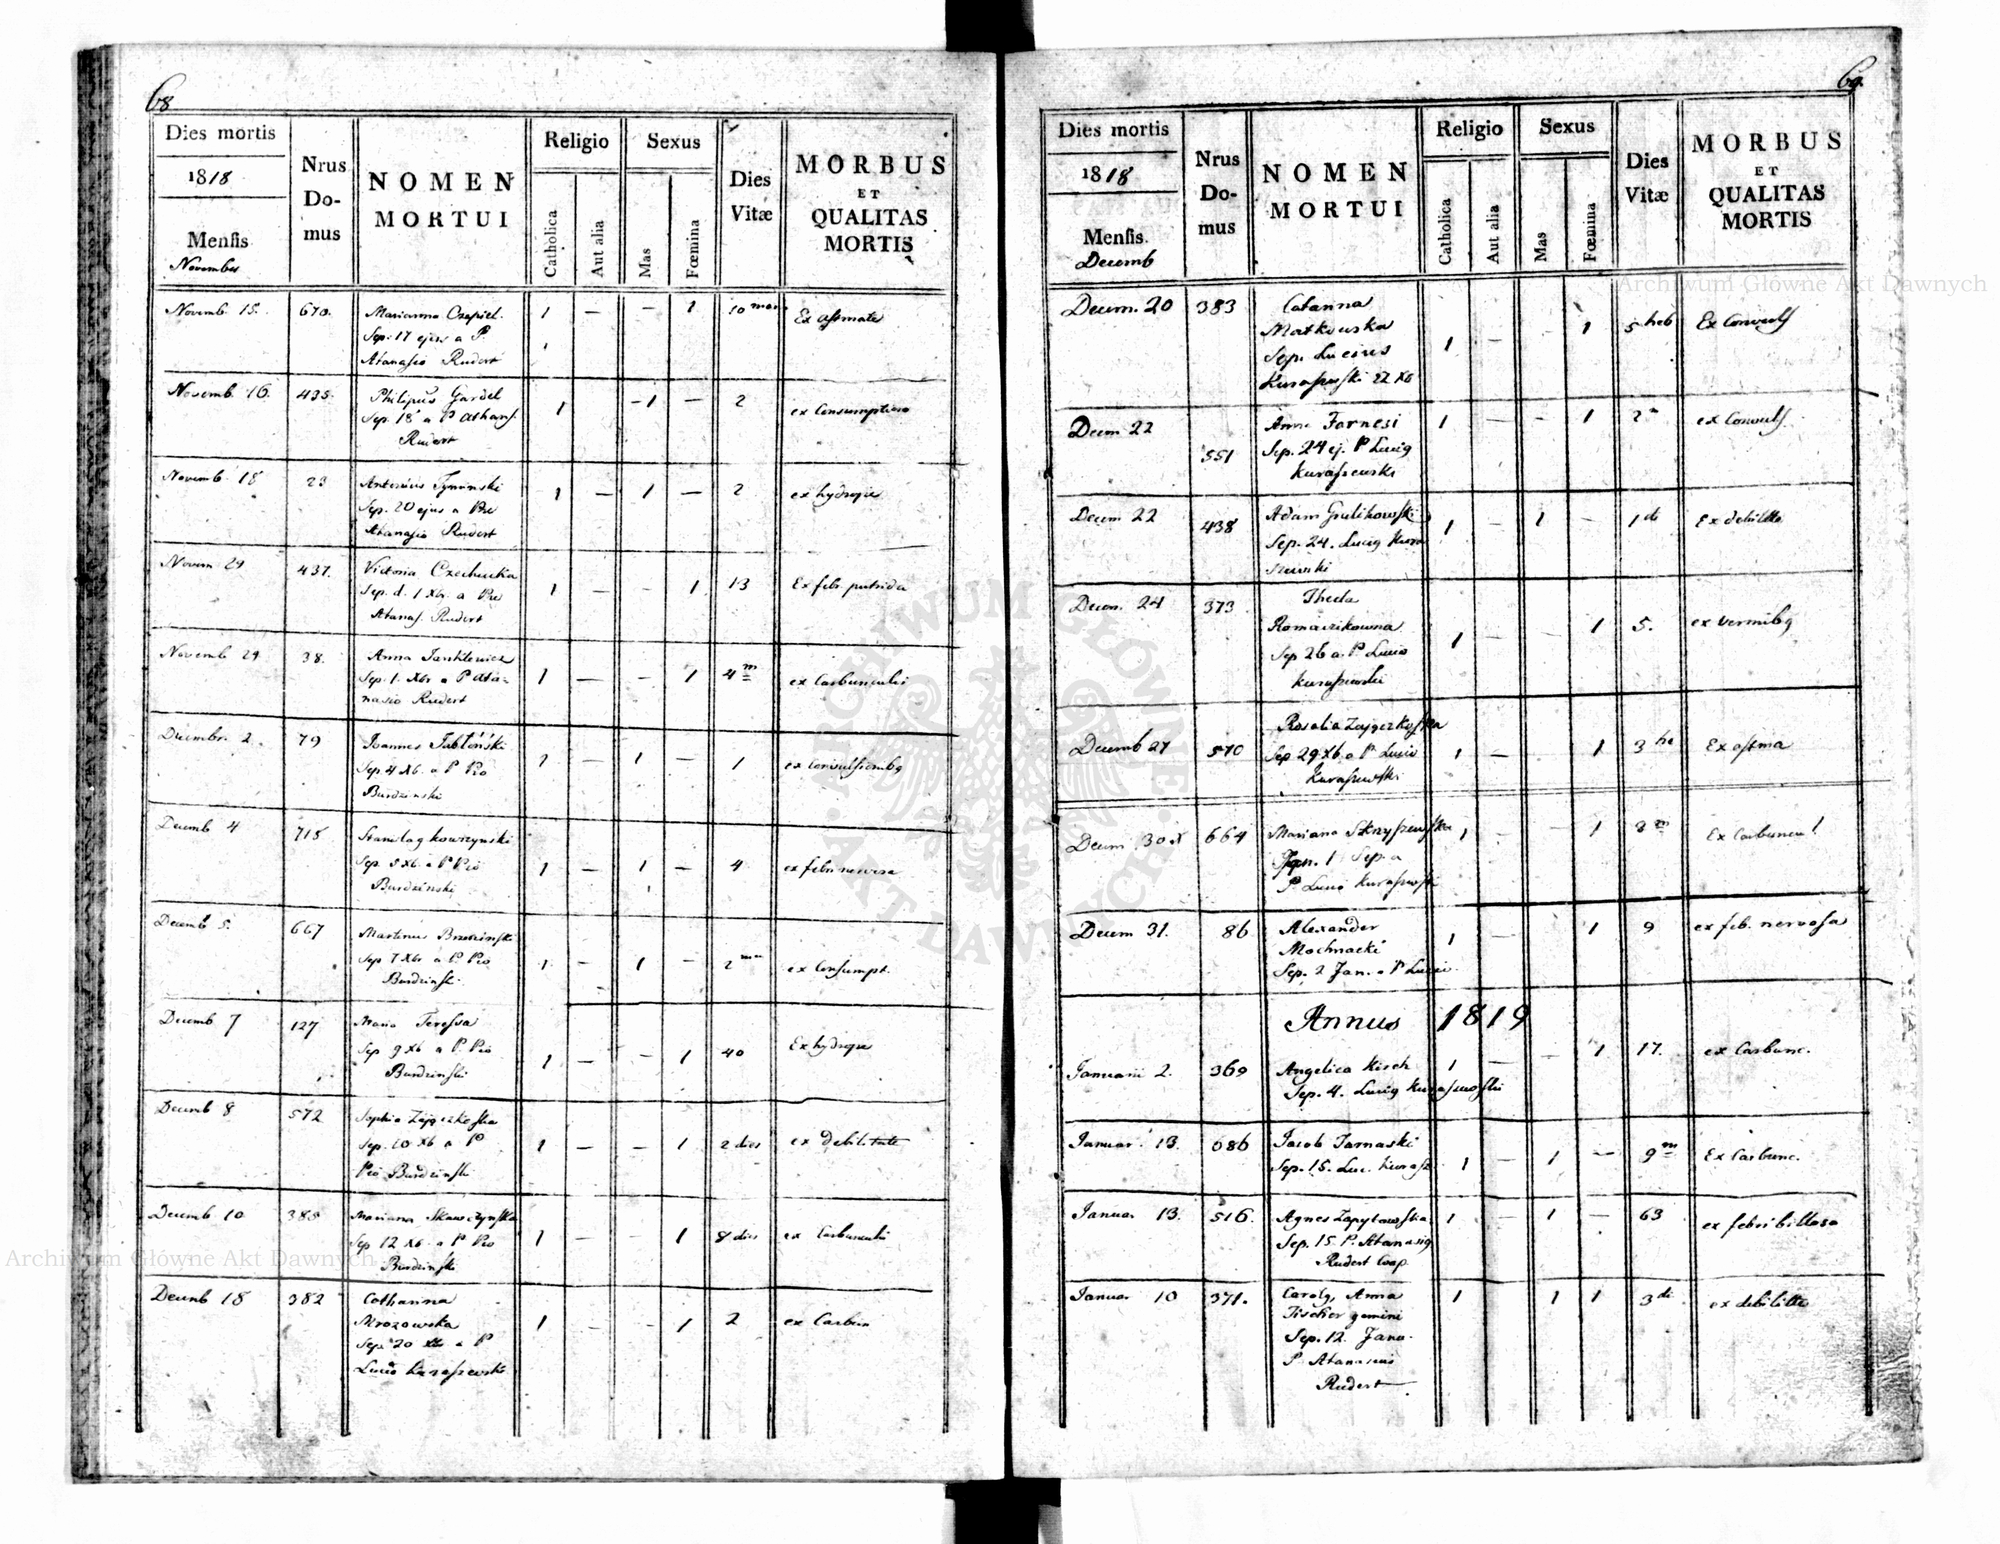 68
Dies mortis
1818
Mensis
November
Nrus Do-
mus
NOMEN
MORTUI
Religio
Catholica
Aut alia
Sexus
Mas
Fœmina
Dies
Vitæ
MORBUS
ET
QUALITAS
MORTIS
Novemb. 15. 670. Marianna Czepiel. 1 — — 1 10 Ex asmate
Sep. 17 ejus a P.
Atanasio Rudert
Novemb. 16. 435. Philipus Gardel 1 -1 — 2 ex Consumptione
Sep. 18 a P Athanas.
Rudert
Novemb 18 23 Antonius 1 — 1 — 2 ex hydrope
Sep. 20 ejus a Pre
Atanasio Rudert
Novem 29 437. Victoria Czechucka 1 — — 1 13 Ex feb. putrida
Sep. d. 1 Xbr. a Pre
Atanas. Rudert
Novemb 29 38. Anna 1 — — 1 4 m ex Carbunculis
Sep. 1. Xbr a P Ata-
nasio Rudert
Decembr. 2. 79 Joannes Jabłoński 1 — 1 — 1 ex Convulsionibg
Sep 4 Xb. a P Pio
Burdzinski
Decemb 4 715 Stanislag 1 — 1 — 4 ex febri nervosa
Sep. 5 Xb. a P Pio
Burdzinski
Decemb 5. 667 Martinus 1 — 1 — 2 ex Consumpt.
Sep 7 Xbr a P. Pio
Burdzinski.
Decemb 7 127 Maria Teressa 1 — — 1 40 Ex hydrope
Sep 9 Xb a P. Pio
Burdzinski
Decemb 8 572 Sophia Zajączkoska 1 — — 1 2 dies ex debilitate
Sep. 10 Xb a P
Pio Burdzinski
Decemb. 10 Mariana 1 — — 1 8 dies ex Carbunculis
Sep 12 Xb. a P Pio
Burdzinski
Decemb 18 382 Cathanna 1 — — 1 2 ex Carbun
Mrozowska
Sep 20 Xb a P
Lucio Kuraszewski
69.
Dies mortis
1818
Mensis.
Decemb
Nrus
Do-
mus
NOMEN
MORTUI
Religio
Catholica
Aut alia
Sexus
Mas
Fœmina
Dies
Vitæ
MORBUS
ET
QUALITAS
MORTIS
Decem. 20 383 Catanna 1 — — 1 5 heb Ex Convuls
Matkowska
Sep. Lucius
Kuraszewski 22 Xb
Decem 22 551 Anna Farnesi 1 — — 1 ex Convuls.
Sep. 24 ej. P Lucig
Kuraszewski
Decem 22 438 Adam Gulikowski 1 — 1 — 1 di Ex debilitte
Sep. 24. Lucig Kura
szewski
Decem. 24 373 Thecla 1 — — 1 5. ex vermibg
Romarzikowna
Sep 26 a P Lucio
Kuraszewski
Decemb 27 570 Rosalia Zajączkoska 1 — — 1 Ex astma
Sep 29 Xb. a P. Lucio
Kuraszewski
Decem 30 664 Mariana 1 — — 1 Ex Carbuncul
Jan. 1 Sep. a
P Lucio Kuraszewski
Decem 31. 86 Alexander 1 — 1 9 ex feb. nervosa
Mochnacki
Sep. 2 Jan. a P Lucio.
Annus 1819
Januarii 2. 369 Angelica Kisch 1 — — 1 17. ex Carbunc.
Sep. 4. Lucig Kuraszewski
Januar. 13. 686 Jacob Tarnaski 1 — 1 — 9 m Ex Carbunc.
Sep. 15. Luc. Kurasz
Januar 13. 516. Agnes 1 — 1 — 63 ex febri billosa
Sep. 15. P. Atanasig
Rudert Coop.
Januar 10 371. Carolg, Anna 1 1 1 3 di ex debilitte
Tischer gemini
Sep. 12. Janu.
P. Atanasius
Rudert
Archiwum Główne Akt Dawnych
Archiwum Główne Akt Dawnych
ARCHIWUM GŁÓWNE AKT DAWNYCH